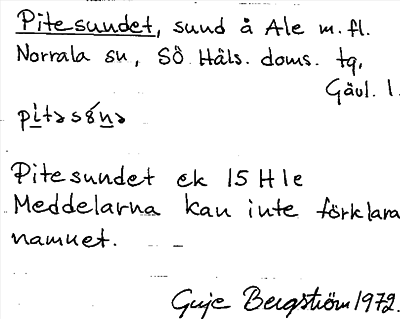 Pitesundet, sund å Ale m.fl.
Norrala sn, SÖ Häls. doms. tg,
Gävl. l.
Pitesundet ek 15 H 1e
Meddelarna kan inte förklara
namnet.
Guje Bergström 1972.